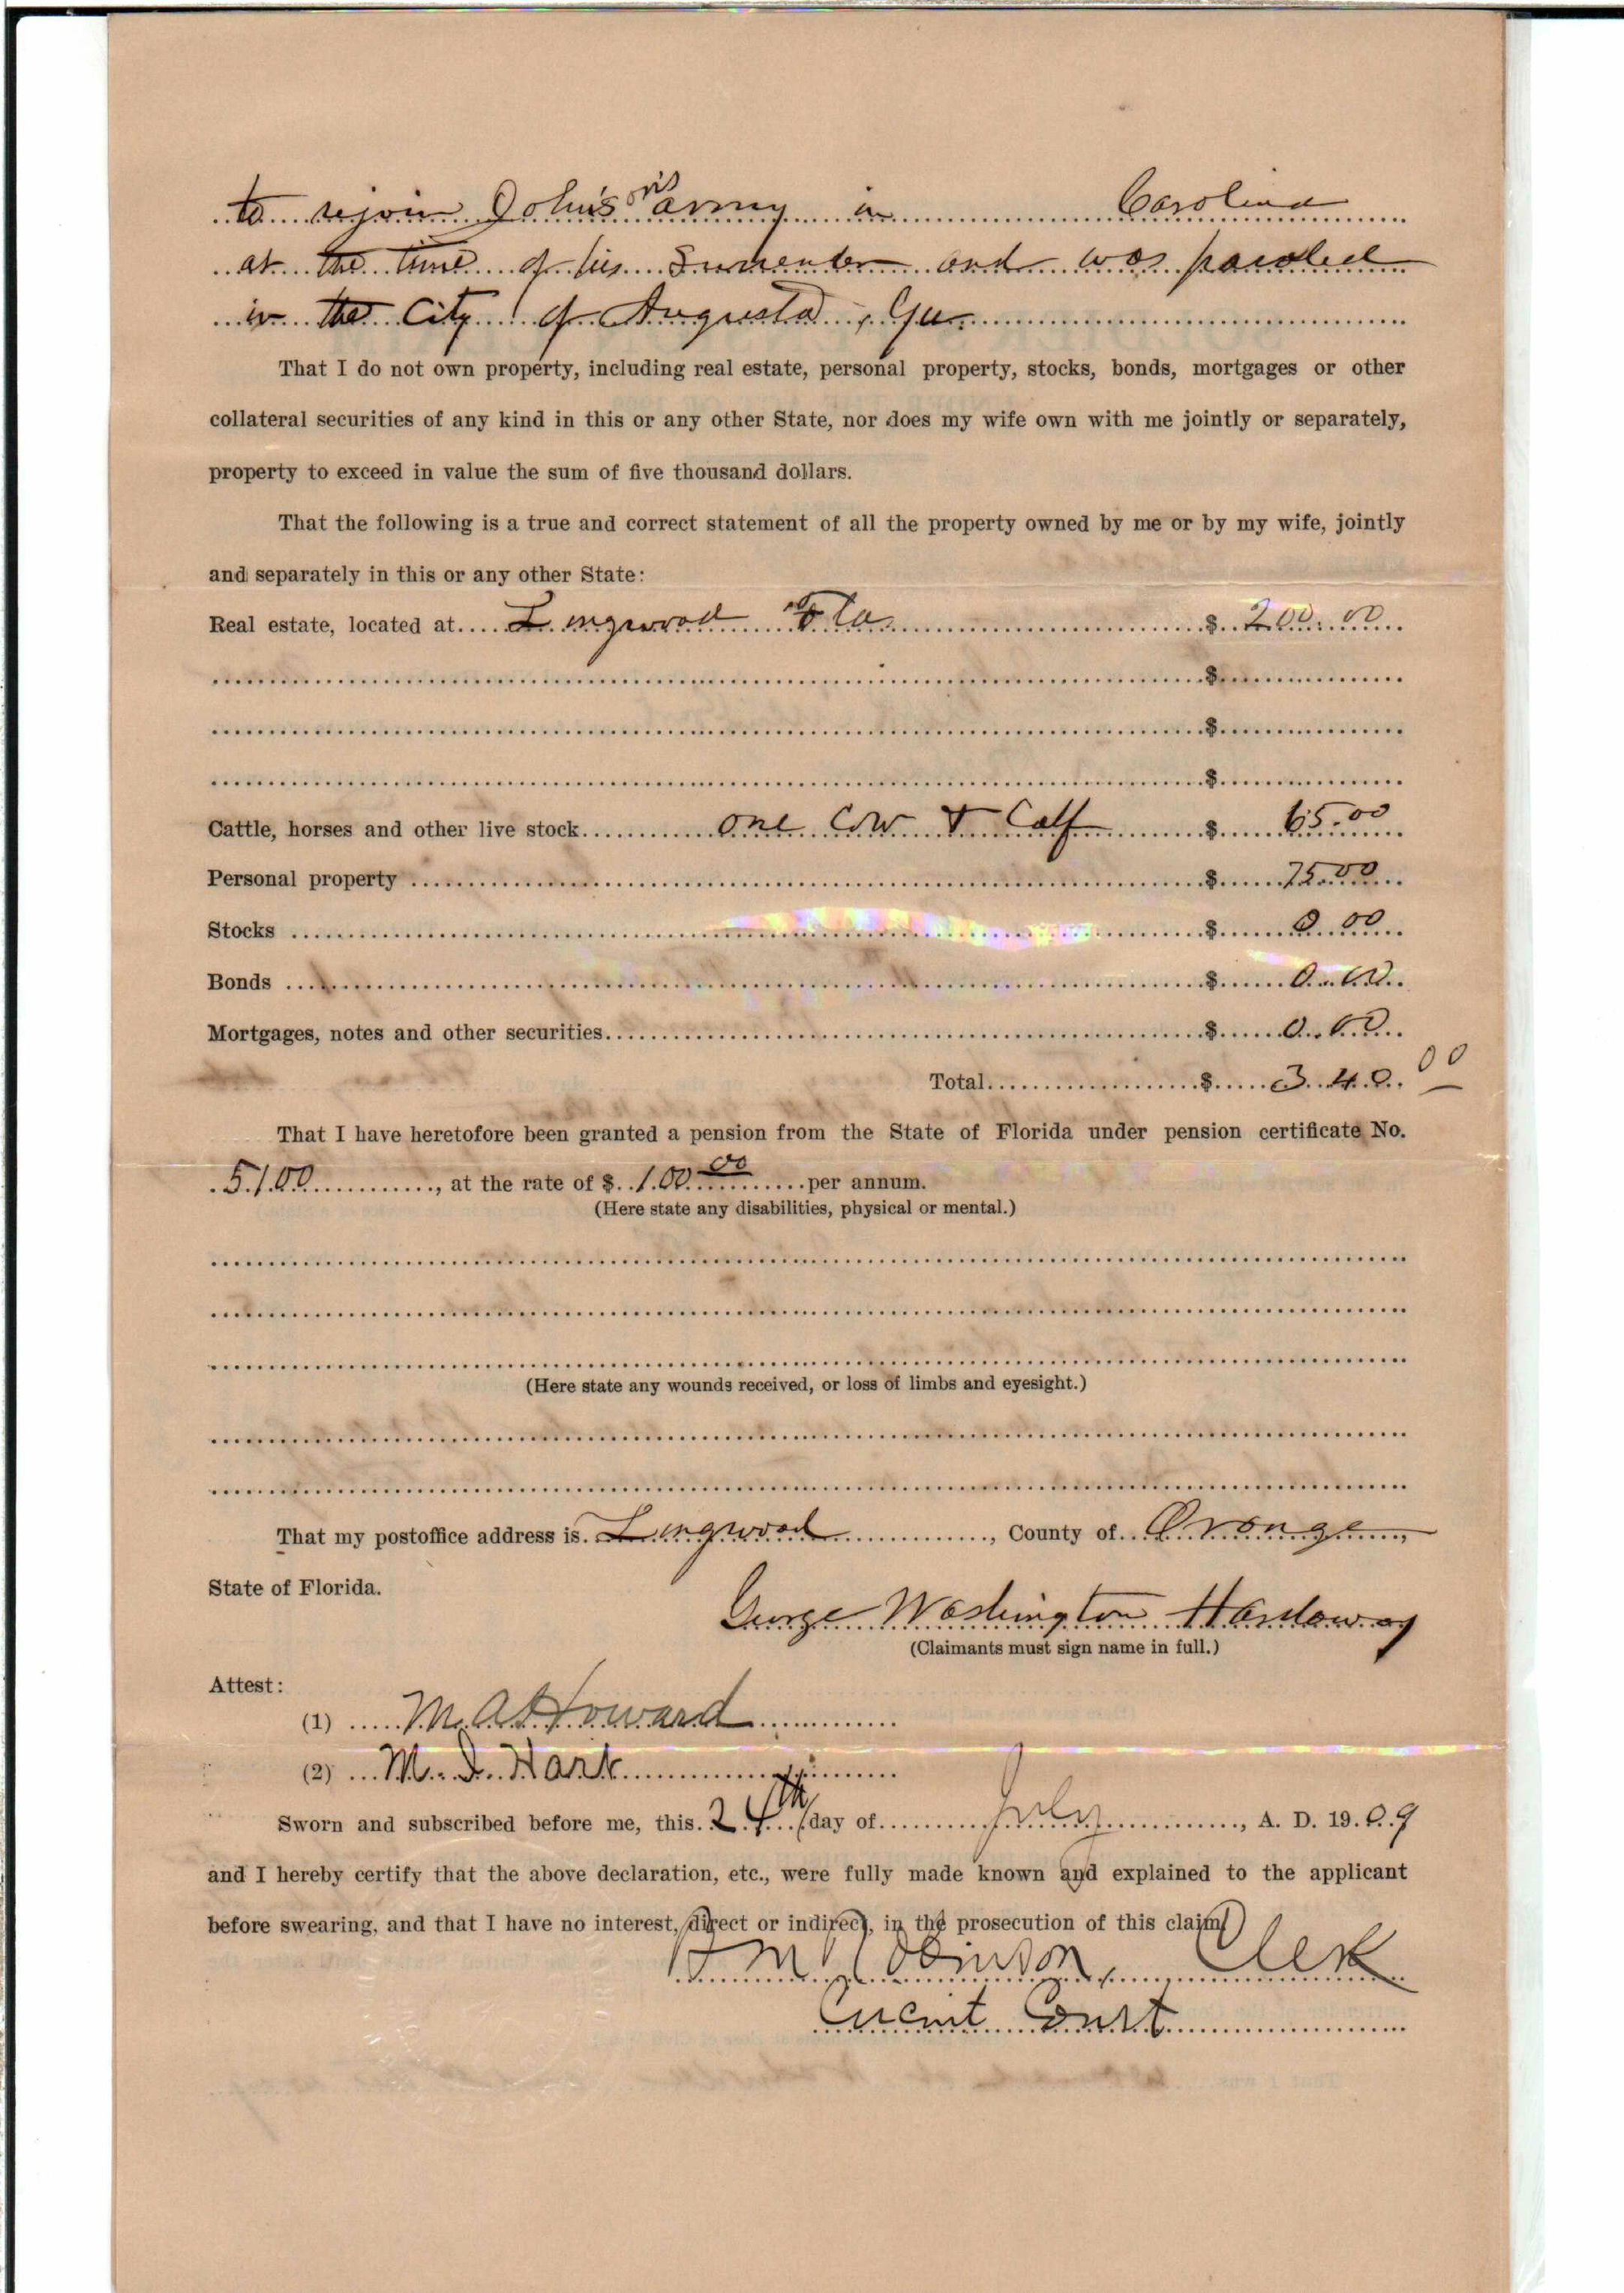 to rejoin Johns'on's army in Carolina
at the time of his Surrender and was paroled
in the City of Augusta, Ga.
That I do not own property, including real estate, personal property, stocks, bonds, mortgages or other
collateral securities of any kind in this or any other State, nor does my wife own with me jointly or separately,
property to exceed in value the sum of five thousand dollars.
That the following is a true and correct statement of all the property owned by me or by my wife, jointly
and separately in this or any other State:
Real estate, located at Longwood Fla. $ 200.00
$
$
$
Cattle, horses and other live stock one Cow & Calf $ 65.00
Personal property $ 75.00
Stocks $ 0 00
Bonds $ 0.00
Mortgages, notes and other securities $ 0.00
Total $ 340.00
That I have heretofore been granted a pension from the State of Florida under pension certificate No.
5100, at the rate of $ 100 00 per annum.
(Here state any disabilities, physical or mental.)
(Here state any wounds received, or loss of limbs and eyesight.)
That my postoffice address is Longwood, County of Orange,
State of Florida.
George Washington Hardaway
(Claimants must sign name in full.)
Attest:
(1) M. A. Howard
(2) M. I. Hart
Sworn and subscribed before me, this 24th day of July, A. D. 1909
and I hereby certify that the above declaration, etc., were fully made known and explained to the applicant
before swearing, and that I have no interest, direct or indirect, in the prosecution of this claim
B M Robinson, Clerk
Circuit Court